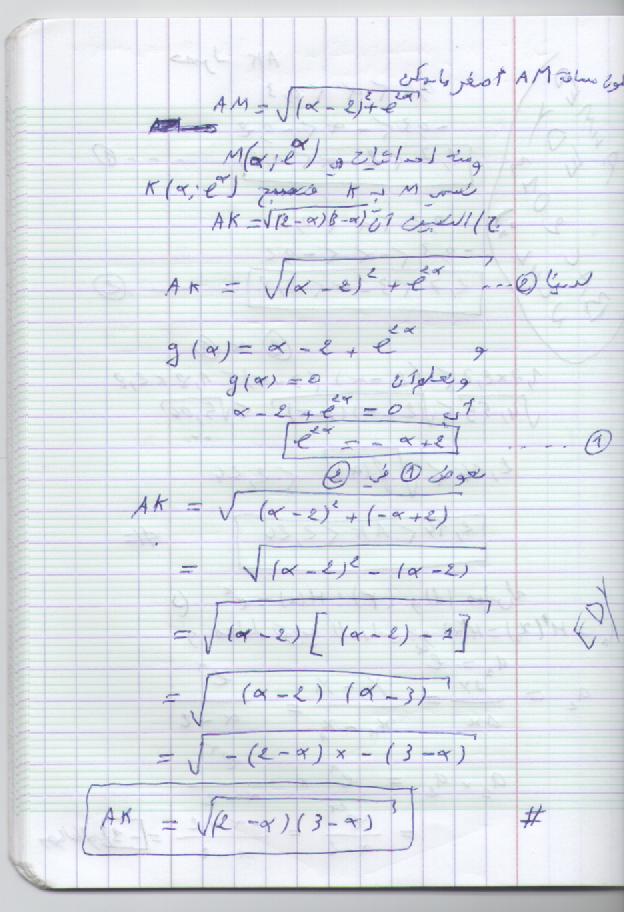 مسافة AM أصغر ما يمكن
AM = √((α - 2)² + e^{2α})
ومنه احداثيات M(α; e^α) هي
نسمي M بـ K فتصبح K(α; e^α)
ج) التبيين أن AK = √((2-α)(3-α))
لدينا AK = √((α - 2)² + e^{2α}) ... ②
و g(α) = α - 2 + e^{2α}
ونعلم أن g(α) = 0
أي α - 2 + e^{2α} = 0
e^{2α} = - α + 2 ..... ①
نعوض ① في ②
AK = √((α - 2)² + (-α + 2))
= √((α - 2)² - (α - 2))
= √((α - 2) [(α - 2) - 1])
= √((α - 2) (α - 3))
= √(-(2 - α) × -(3 - α))
AK = √((2 - α)(3 - α)) #